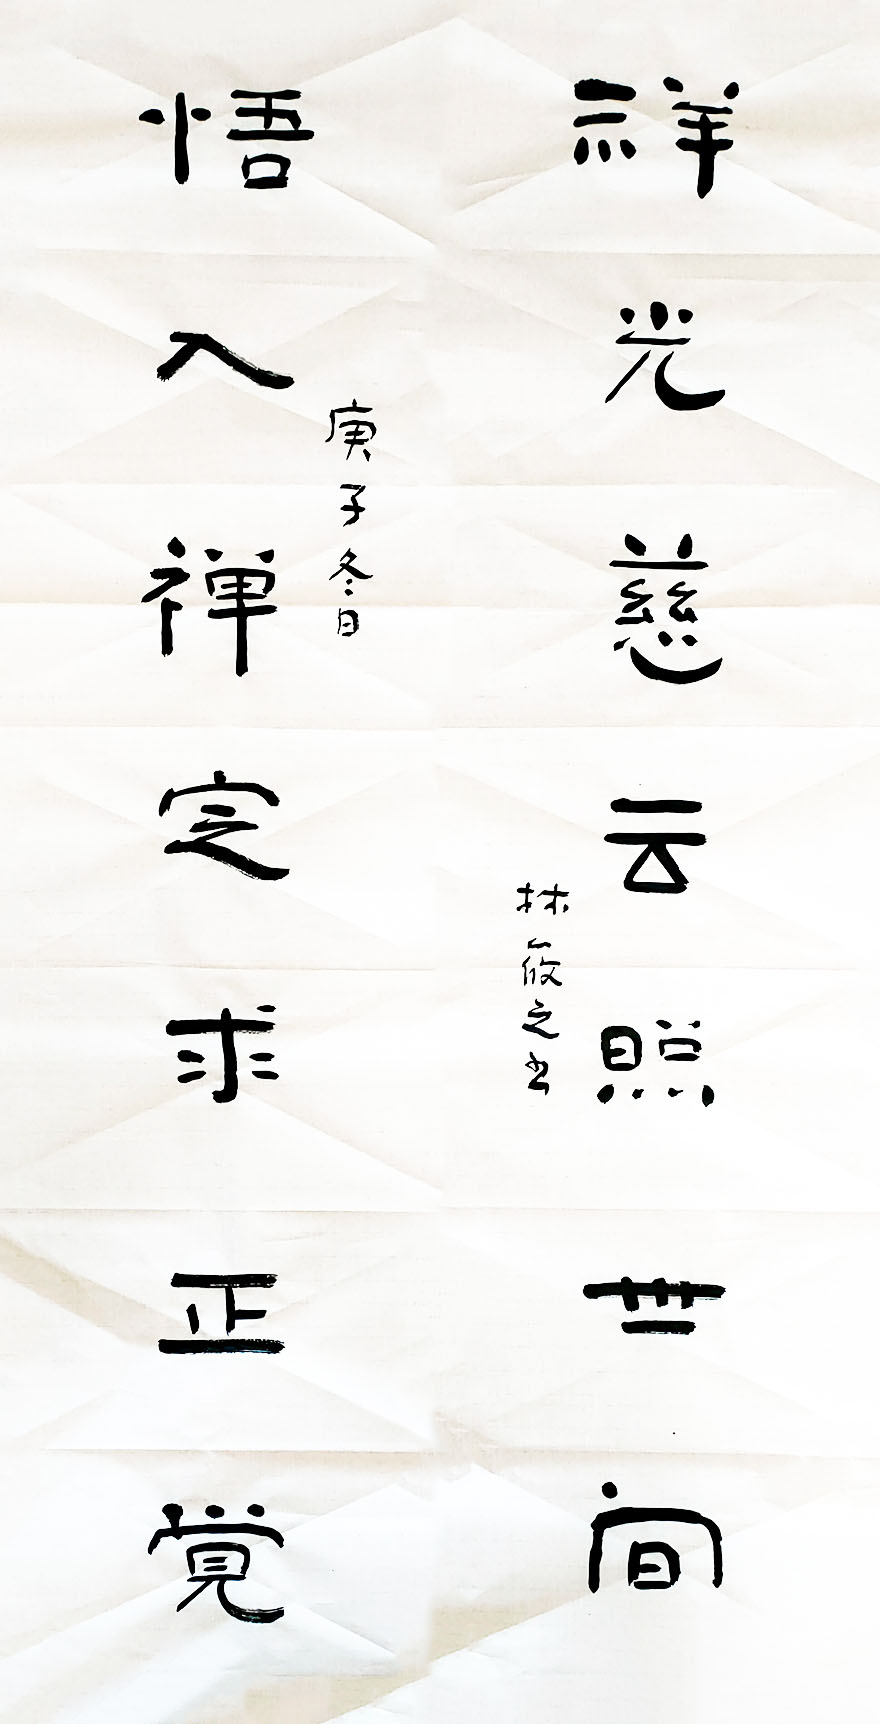 祥光慈云照世间
林之书
庚子冬日
悟入禅定求正覚